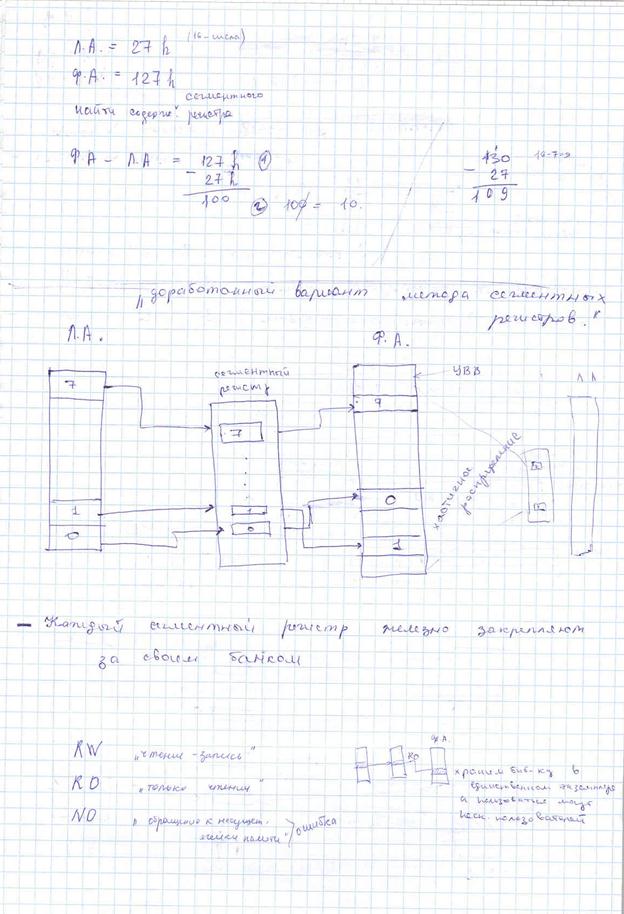 Л.А. = 27 h (16-числа)
Ф.А. = 127 h
найти содерж. сегментного регистра
Ф.А - Л.А. = 127 h ①
- 27 h
100
② 100 = 10.
130
- 27
109
"доработанный вариант метода сегментных
регистров."
Л.А.
Ф.А.
сегментный
регистр
УВВ
Л А
7
7
1
0
1
0
0
1
хаотичное
распределение
- Каждый сегментный регистр железно закрепляют
за своим банком
RW "чтение-запись"
RO "только чтение"
NO "обращение к несущест.
ячейки памяти" } ошибка
Ф.А.
RO
храним биб-ку в
единственном экземпляре
а пользоваться могут
неск. пользователей